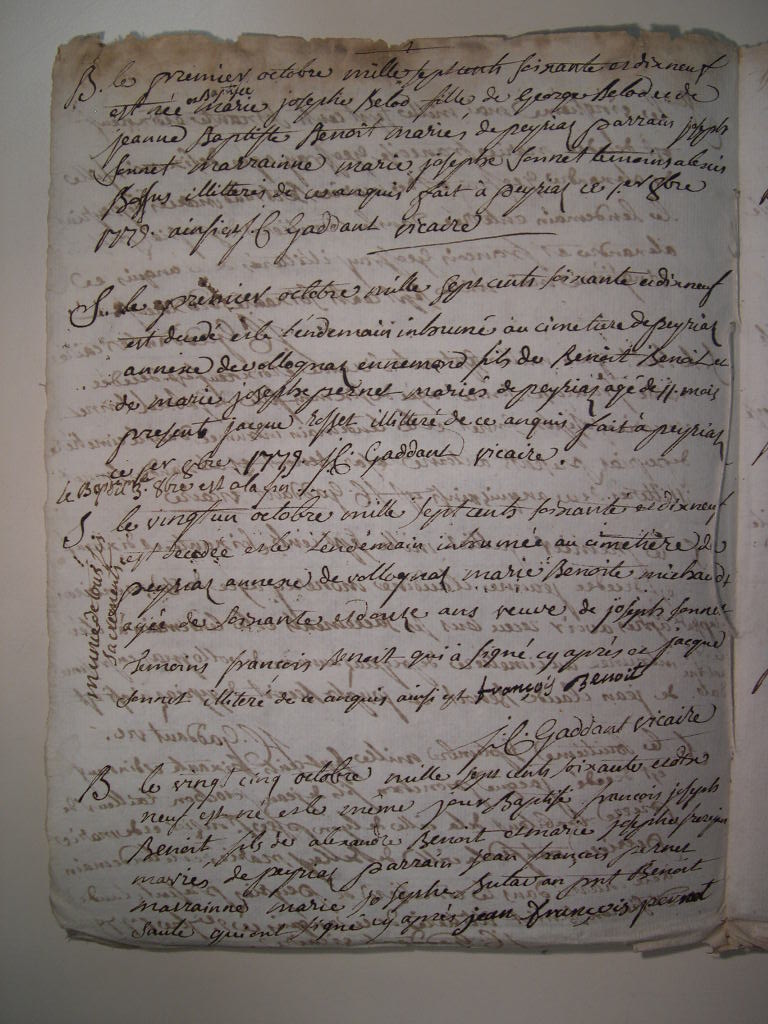 B. le premier octobre mille sept cents soixante et dix neuf
est née et Baptisée marie josephe Belod fille de George Belod et de
jeanne Baptiste Benoit mariés de peyriat parrain joseph
Sonnet marrainne marie josephe Sonnet temoins alexis
illiteres de ce anquis fait à Peyriat ce 1er 8bre
1779. ainsi est J. C. Gaddant vicaire
S. le premier octobre mille sept cents soixante et dix neuf
est decedé et le lendemain inhumé au cimetiere de peyriat
annexe de vollognat ennemond fils de Benoit Benoit et
de marie josephe pernet mariés de peyriat agé de 11 mois
presents jacque Rosset illitteré de ce anquis fait à peyriat
ce 1er 8bre 1779. J. C. Gaddant vicaire.
le Bapt. 8bre est a la fin
S le vingt un octobre mille sept cents soixante et dix neuf
est decedée et le lendemain inhumée au cimetière de
peyriat annexe de vollognat marie Benoite michaud
munie de tous ses sacrements
agée de soixante et douze ans veuve de joseph Sonnet
temoins francois Benoit qui à signé cy après et jacque
Sonnet illiteré de ce anquis ainsi est françois Benoit
J. C. Gaddant vicaire
B le vingt cinq octobre mille sept cents soixante et dix
neuf est né et le même jour Baptisé francois joseph
Benoit fils de alexandre Benoit et marie josephe
mariés de peyriat parrain jean françois pernet
marrainne marie josephe Benoit
qui ont signé cy après jean françois pernet